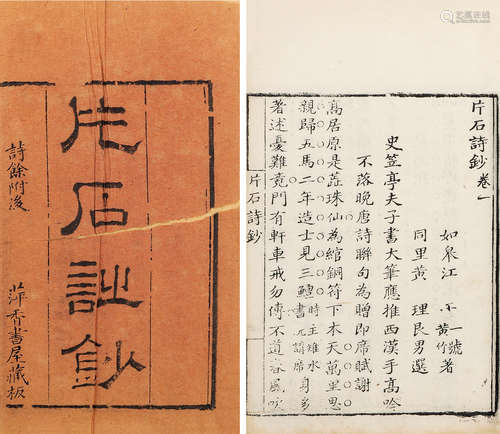 片石詩鈔
詩餘附後
萍香書屋藏板
片石詩鈔卷一
如皋江 干一號黃竹著
同里黃 理艮男選
史笠亭夫子書大筆應推西漢手高吟
不落晚唐詩聯句為贈即席賦謝
高居原是蕊珠仙為綰銅符下木天萬里思
親歸五馬二年造士見三鱣時主雉水書院講席身多
著述憂難竟門有軒車戒勿傳不道春風吹
片石詩鈔